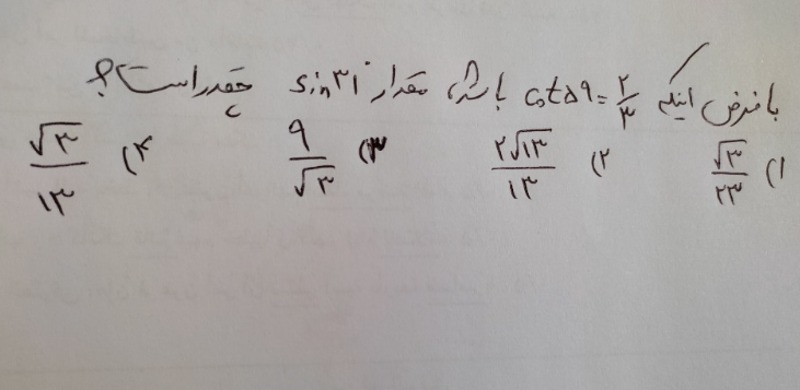 با فرض اینکه cot۵۹=۲/۳ باشد، مقدار sin۳۱° چقدر است؟
۱) √۳/۲۳ ۲) ۲√۱۳/۱۳ ۳) ۹/√۳ ۴) √۳/۱۳